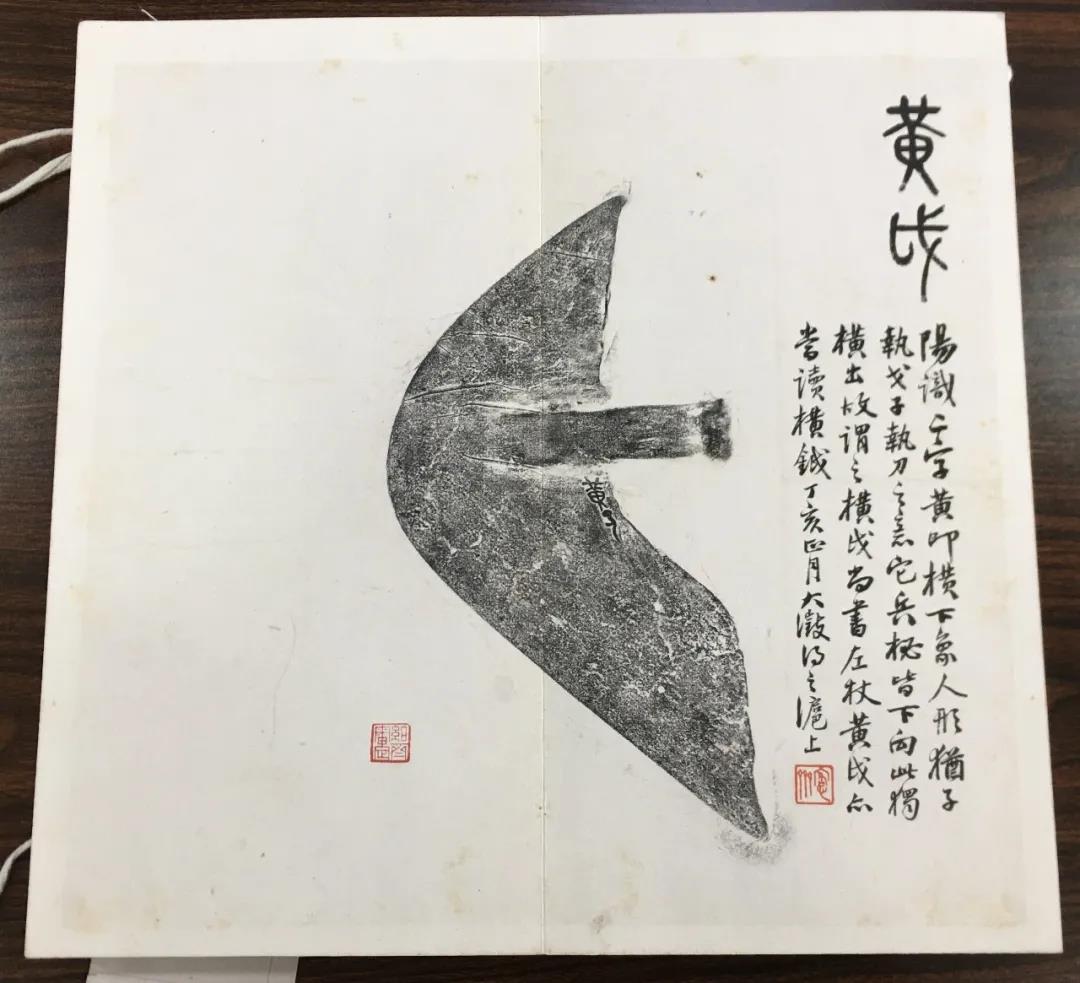 黃戉
陽識二字黃即橫下象人形猶子
執戈子執刀之意它兵柲皆下向此獨
橫出故謂之橫戉尚書左杖黃戉亦
當讀橫鉞丁亥正月大澂得之滬上
黃